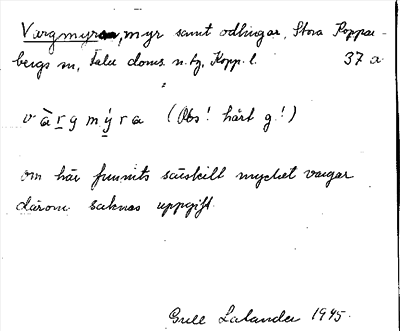 Vargmyran, myr samt odlingar, Stora Koppar-
bergs sn, Falu doms. n. tg, Kopp. l. 37 a
v à r g m ý r a (Obs! hårt g!)
om här funnits särskilt mycket vargar
därom saknas uppgift.
Greta Lalander 1945.